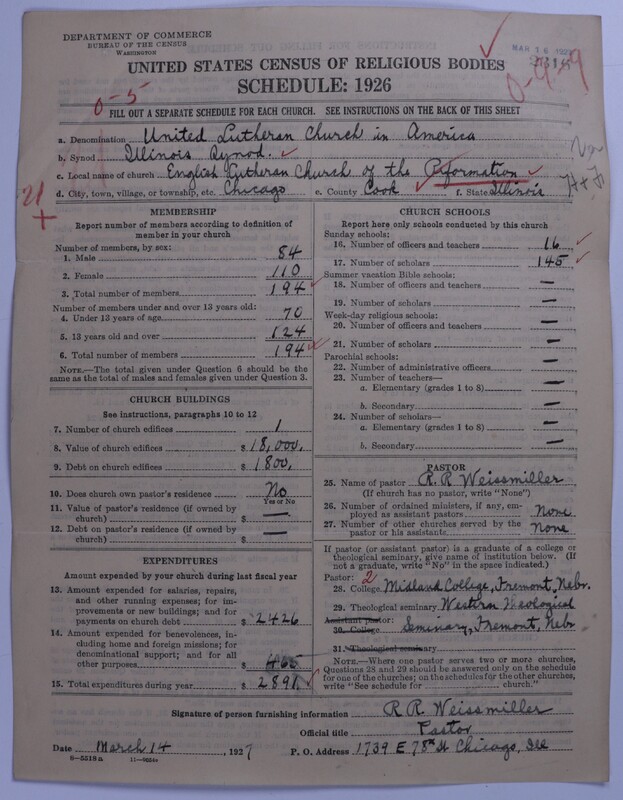 DEPARTMENT OF COMMERCE
BUREAU OF THE CENSUS
WASHINGTON
MAR 16 1927
UNITED STATES CENSUS OF RELIGIOUS BODIES
SCHEDULE: 1926
0-9-9
0-5
FILL OUT A SEPARATE SCHEDULE FOR EACH CHURCH. SEE INSTRUCTIONS ON THE BACK OF THIS SHEET
a. Denomination United Lutheran Church in America
b. Synod Illinois Synod.
c. Local name of church English Lutheran Church of the Reformation
d. City, town, village, or township, etc. Chicago e. County Cook f. State Illinois
21
MEMBERSHIP
Report number of members according to definition of
member in your church
Number of members, by sex:
1. Male 84
2. Female 110
3. Total number of members 194
Number of members under and over 13 years old:
4. Under 13 years of age 70
5. 13 years old and over 124
6. Total number of members 194
NOTE.—The total given under Question 6 should be
the same as the total of males and females given under Question 3.
CHURCH BUILDINGS
See instructions, paragraphs 10 to 12
7. Number of church edifices 1
8. Value of church edifices $ 18,000,
9. Debt on church edifices $ 1800,
10. Does church own pastor's residence No
Yes or No
11. Value of pastor's residence (if owned by
church) $ —
12. Debt on pastor's residence (if owned by
church) $ —
EXPENDITURES
Amount expended by your church during last fiscal year
13. Amount expended for salaries, repairs,
and other running expenses; for im-
provements or new buildings; and for
payments on church debt $ 2426
14. Amount expended for benevolences, in-
cluding home and foreign missions; for
denominational support; and for all
other purposes $ 465
15. Total expenditures during year $ 2891.
CHURCH SCHOOLS
Report here only schools conducted by this church
Sunday schools:
16. Number of officers and teachers 16
17. Number of scholars 145
Summer vacation Bible schools:
18. Number of officers and teachers —
19. Number of scholars —
Week-day religious schools:
20. Number of officers and teachers —
21. Number of scholars —
Parochial schools:
22. Number of administrative officers —
23. Number of teachers—
a. Elementary (grades 1 to 8) —
b. Secondary —
24. Number of scholars—
a. Elementary (grades 1 to 8) —
b. Secondary —
PASTOR
25. Name of pastor R. R. Weissmiller
(If church has no pastor, write "None")
26. Number of ordained ministers, if any, em-
ployed as assistant pastors None
27. Number of other churches served by the
pastor or his assistants None
If pastor (or assistant pastor) is a graduate of a college or
theological seminary, give name of institution below. (If
not a graduate, write "No" in the space indicated.)
Pastor: 2
28. College Midland College, Fremont, Nebr.
29. Theological seminary Western Theological
Assistant pastor:
30. College Seminary, Fremont, Nebr
31. Theological seminary
NOTE.—Where one pastor serves two or more churches,
Questions 28 and 29 should be answered only on the schedule
for one of the churches; on the schedules for the other churches,
write "See schedule for ______ church."
Signature of person furnishing information R. R. Weissmiller
Official title Pastor
Date March 14, 1927 P. O. Address 1739 E 78th St Chicago, Ill
8—5518a 11—9654